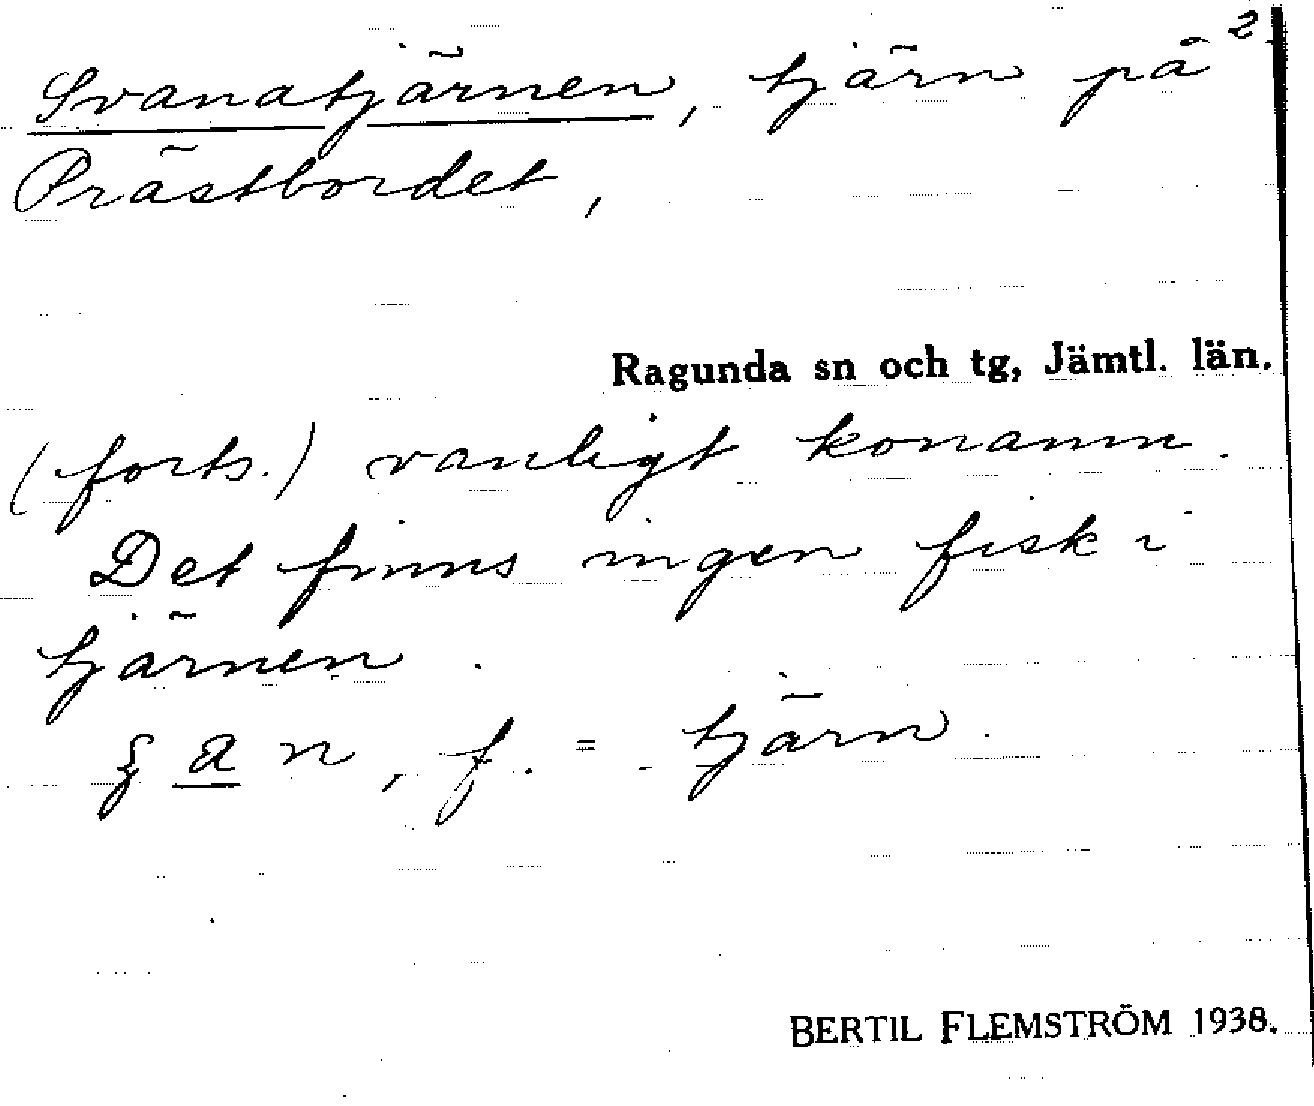 2
Svanatjärnen, tjärn på
Prästbordet,
Ragunda sn och tg, Jämtl. län.
(forts.) vanligt konamn.
Det finns ingen fisk i
tjärnen.
n, f. = tjärn.
BERTIL FLEMSTRÖM 1938.